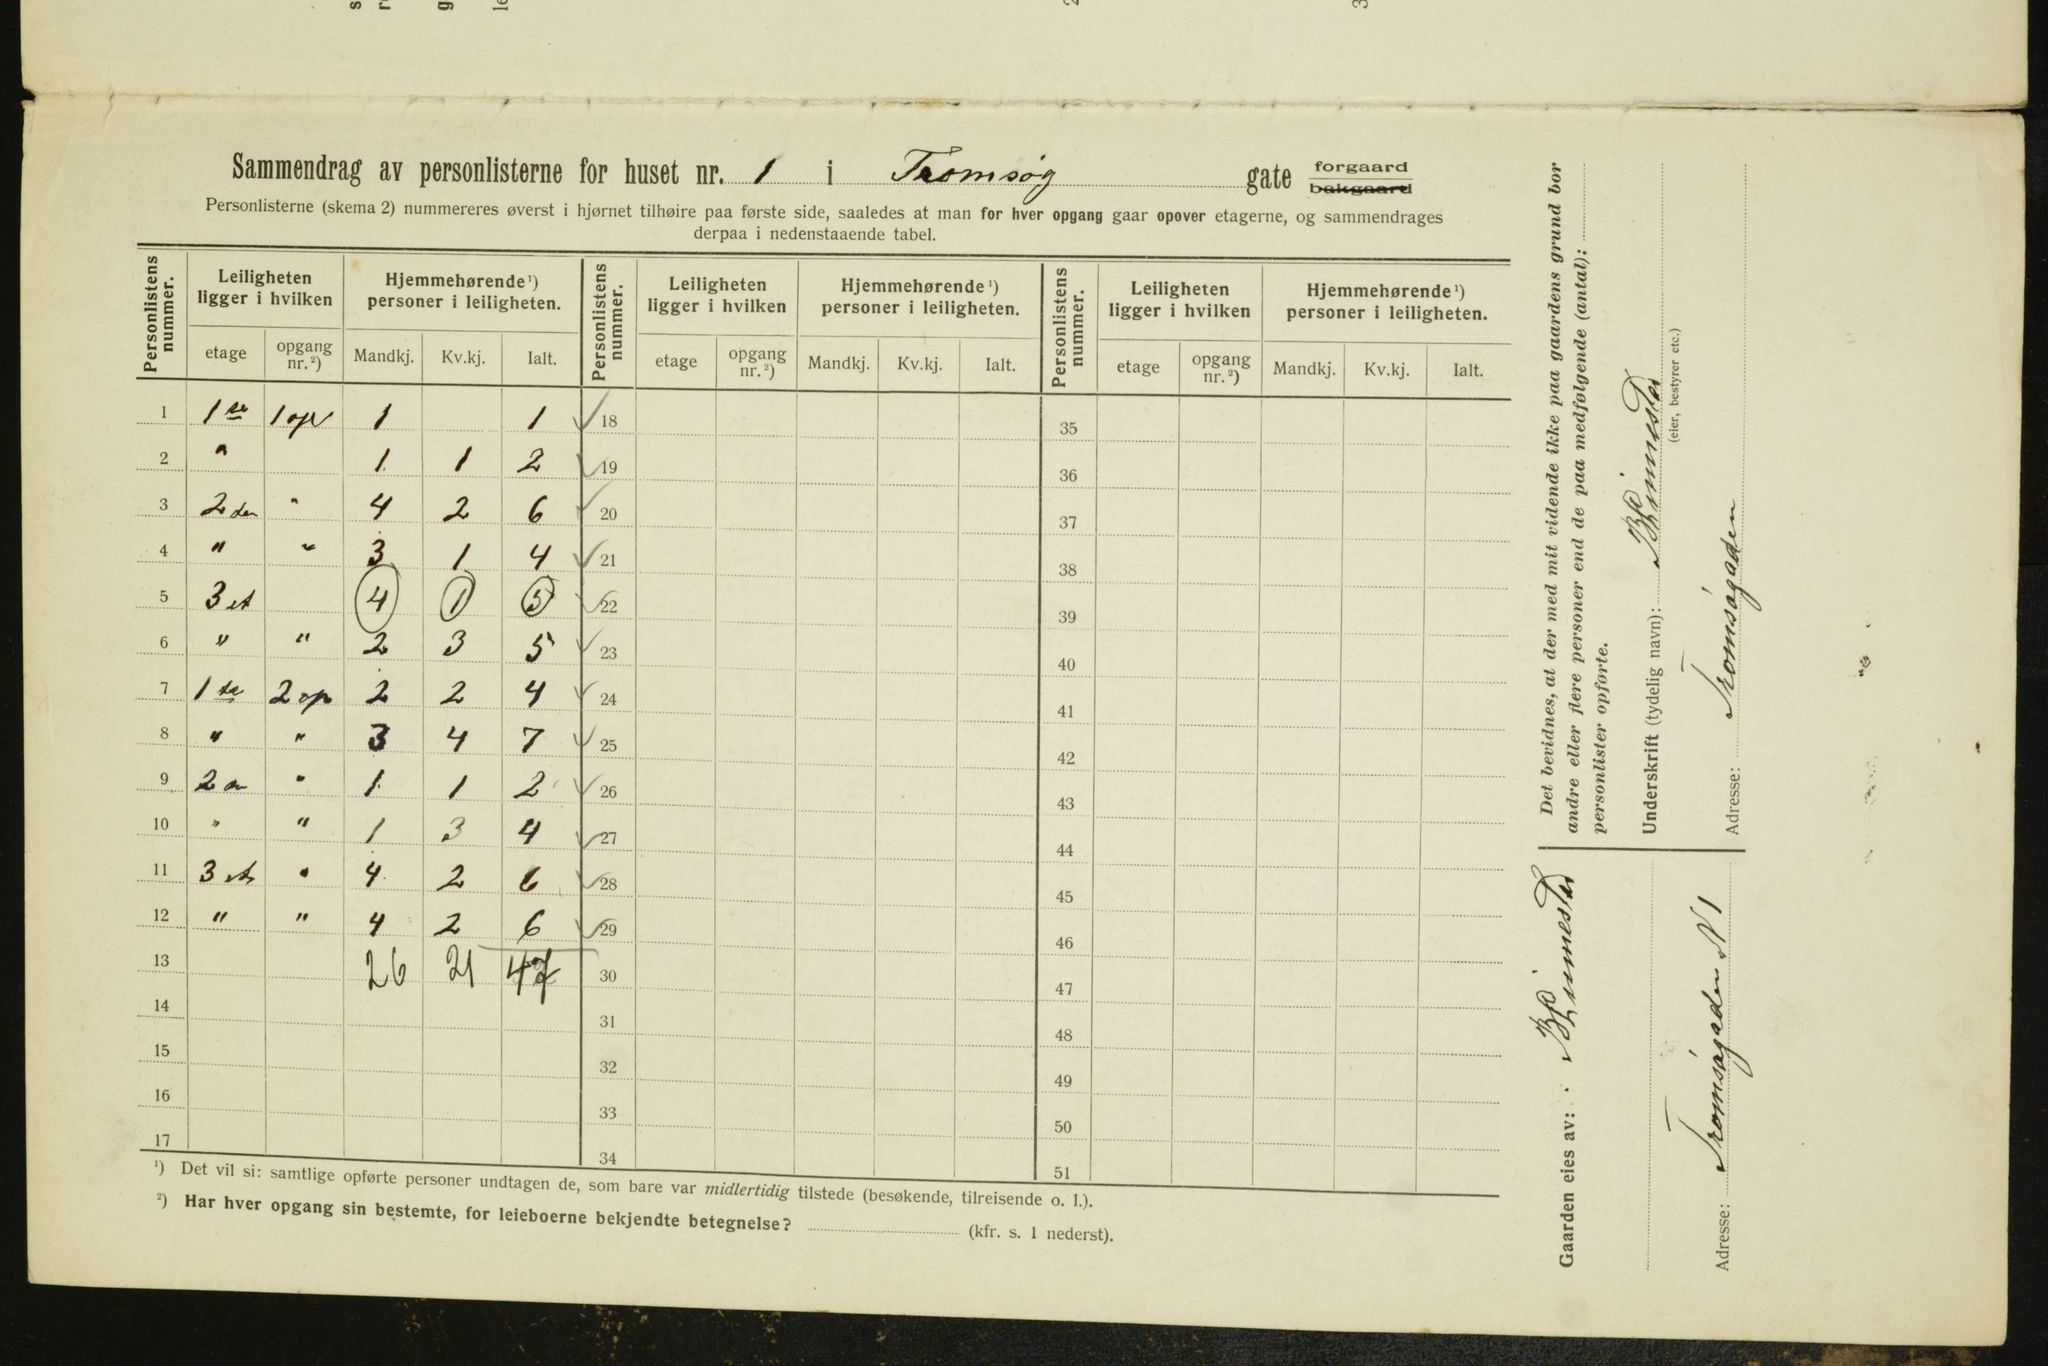 Sammendrag av personlisterne for huset nr. 1 i Tromsøg gate forgaard bakgaard
Personlisterne (skema 2) nummereres øverst i hjørnet tilhøire paa første side, saaledes at man for hver opgang gaar opover etagerne, og sammendrages
derpaa i nedenstaaende tabel.
Personlistens nummer. Leiligheten ligger i hvilken Hjemmehørende¹) personer i leiligheten. Personlistens nummer. Leiligheten ligger i hvilken Hjemmehørende¹) personer i leiligheten. Personlistens nummer. Leiligheten ligger i hvilken Hjemmehørende¹) personer i leiligheten.
etage opgang nr.²) Mandkj. Kv.kj. Ialt. etage opgang nr.²) Mandkj. Kv.kj. Ialt. etage opgang nr.²) Mandkj. Kv.kj. Ialt.
1 1ste 1 op 1 1 18 35
2 " 1 1 2 19 36
3 2den " 4 2 6 20 37
4 " " 3 1 4 21 38
5 3 et 4 1 5 22 39
6 " " 2 3 5 23 40
7 1ste 2 op 2 2 4 24 41
8 " " 3 4 7 25 42
9 2 " 1 1 2 26 43
10 " " 1 3 4 27 44
11 3 et " 4 2 6 28 45
12 " " 4 2 6 29 46
13 26 21 47 30 47
14 31 48
15 32 49
16 33 50
17 34 51
¹) Det vil si: samtlige opførte personer undtagen de, som bare var midlertidig tilstede (besøkende, tilreisende o. l.).
²) Har hver opgang sin bestemte, for leieboerne bekjendte betegnelse? (kfr. s. 1 nederst).
Det bevidnes, at der med mit vidende ikke paa gaardens grund bor
andre eller flere personer end de paa medfølgende (antal):
personlister opførte.
Underskrift (tydelig navn):
(eier, bestyrer etc.)
Adresse: Tromsøgaden
Gaarden eies av:
Adresse: Tromsøgaden N 1